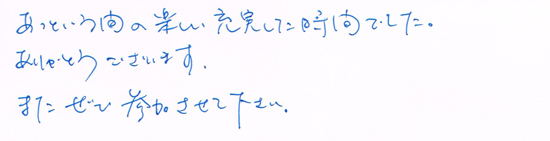 あっという間の楽しい充実した時間でした。
ありがとうございます.
またぜひ参加させて下さい.